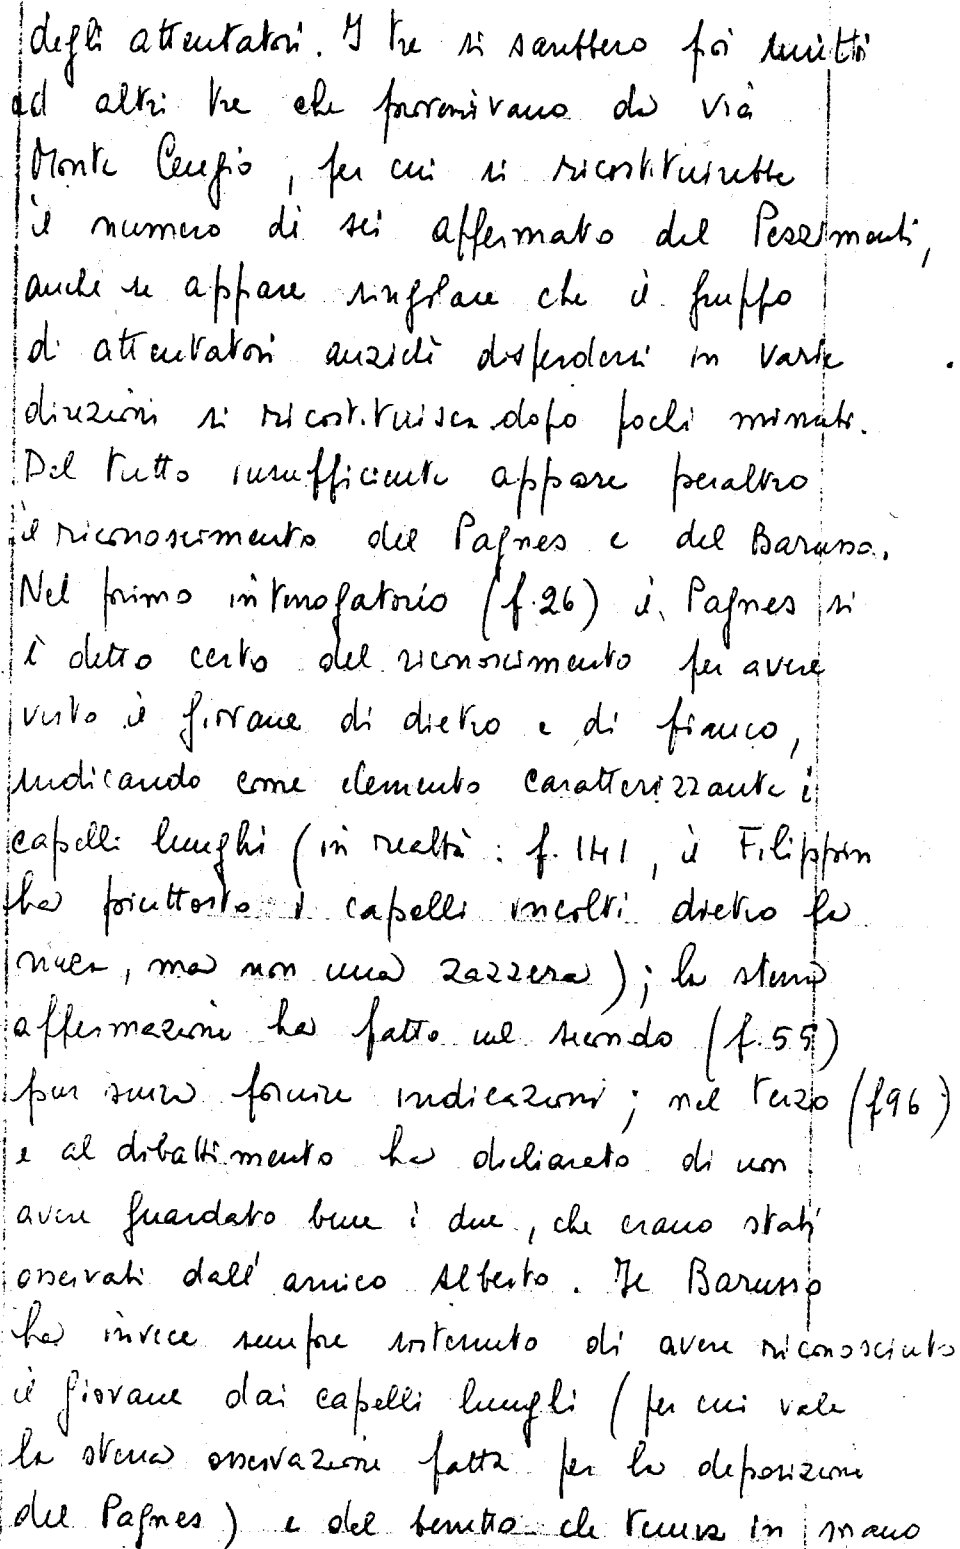 degli attentatori. I tre si sarebbero poi riuniti
ad altri tre che provenivano da via
Monte Cengio, per cui si ricostituirebbe
il numero di sei affermato dal Pezzimenti,
anche se appare singolare che il gruppo
di attentatori anzichè disperdersi in varie
direzioni si ricostituisca dopo pochi minuti.
Del tutto insufficiente appare peraltro
il riconoscimento del Pagnes e del Barusso.
Nel primo interrogatorio (f.26) il Pagnes si
è detto certo del riconoscimento per avere
visto il giovane di dietro e di fianco,
indicando come elemento caratterizzante i
capelli lunghi (in realtà: f. 141, il Filippin
ha piuttosto i capelli incolti dietro la
nuca, ma non una zazzera); la stessa
affermazione ha fatto nel secondo (f.55)
pur senza fornire indicazioni; nel terzo (f96)
e al dibattimento ha dichiarato di non
avere guardato bene i due, che erano stati
osservati dall'amico Alberto. Il Barusso
ha invece sempre sostenuto di avere riconosciuto
il giovane dai capelli lunghi (per cui vale
la stessa osservazione fatta per la deposizione
del Pagnes) e dal berretto che teneva in mano